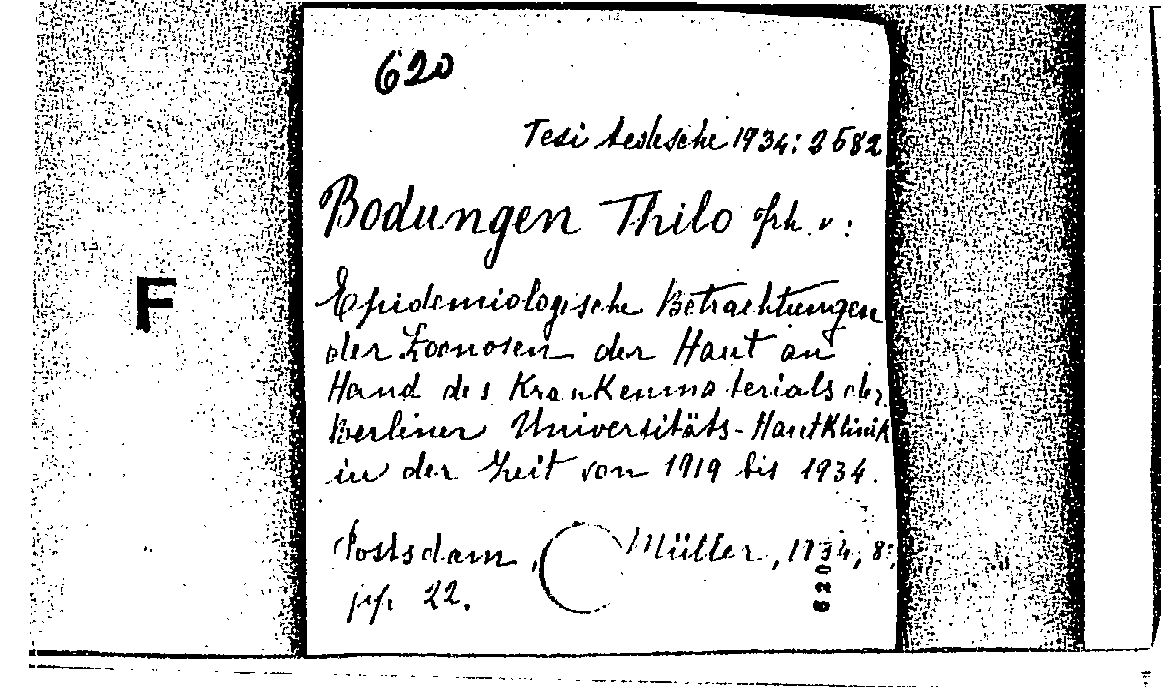 620
Tesi tedesche 1934: 2582
Bodungen Thilo frh. v:
F
Epidemiologische Betrachtungen
der Zoonosen der Haut an
Hand des Krankenmaterials der
Berliner Universitäts-Hautklinik
in der Zeit von 1919 bis 1934.
Postsdam, Müller, 1934, 8:,
pp. 22.
620